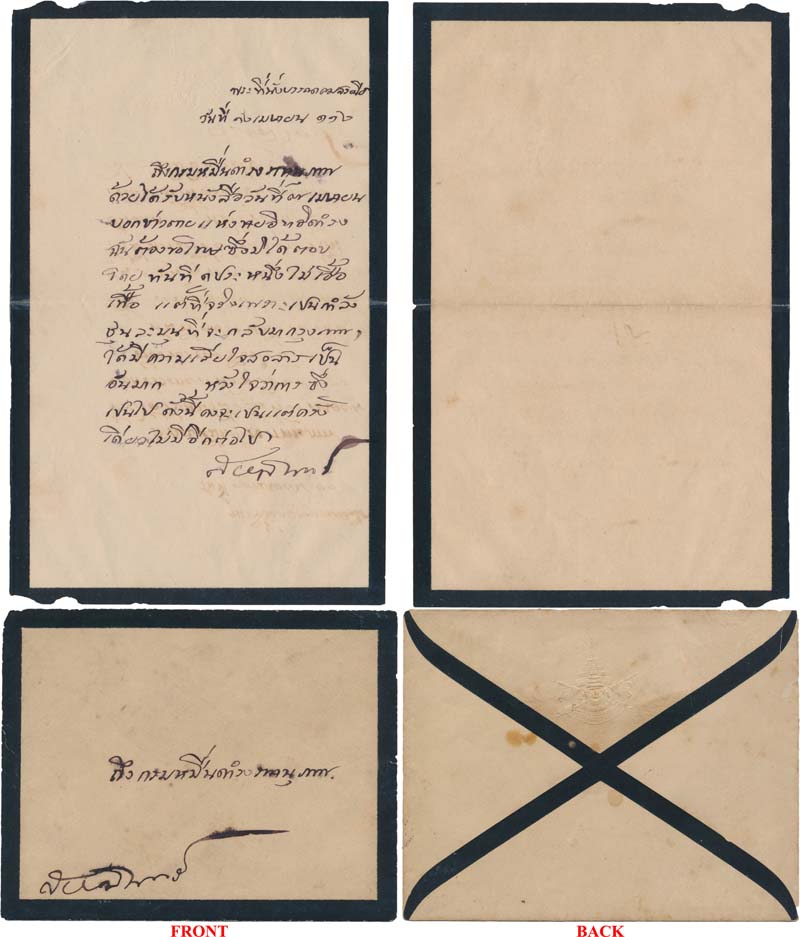 วันที่ เมษายน ๑๑๖
ถึงกรมหมื่นดำรงราชานุภาพ
ด้วยได้รับหนังสือวันที่ ๗ เมษายน
บอกข่าวตายแห่ง
ฉันต้องขอโทษซึ่งมิได้ตอบ
โดยทันที ประหนึ่งไม่เอื้อ
เฟื้อ แต่ที่จริงเพราะเปนกำลัง
ชุนละมุนที่จะกลับมากรุงเทพฯ
ได้มีความเสียใจสงสารเป็น
อันมาก หวังใจว่าการซึ่ง
เปนไปดังนี้คงจะเปนแต่ครั้ง
เดียวไม่มีอีกต่อไป
ถึง กรมหมื่นดำรงราชานุภาพ.
FRONT
BACK